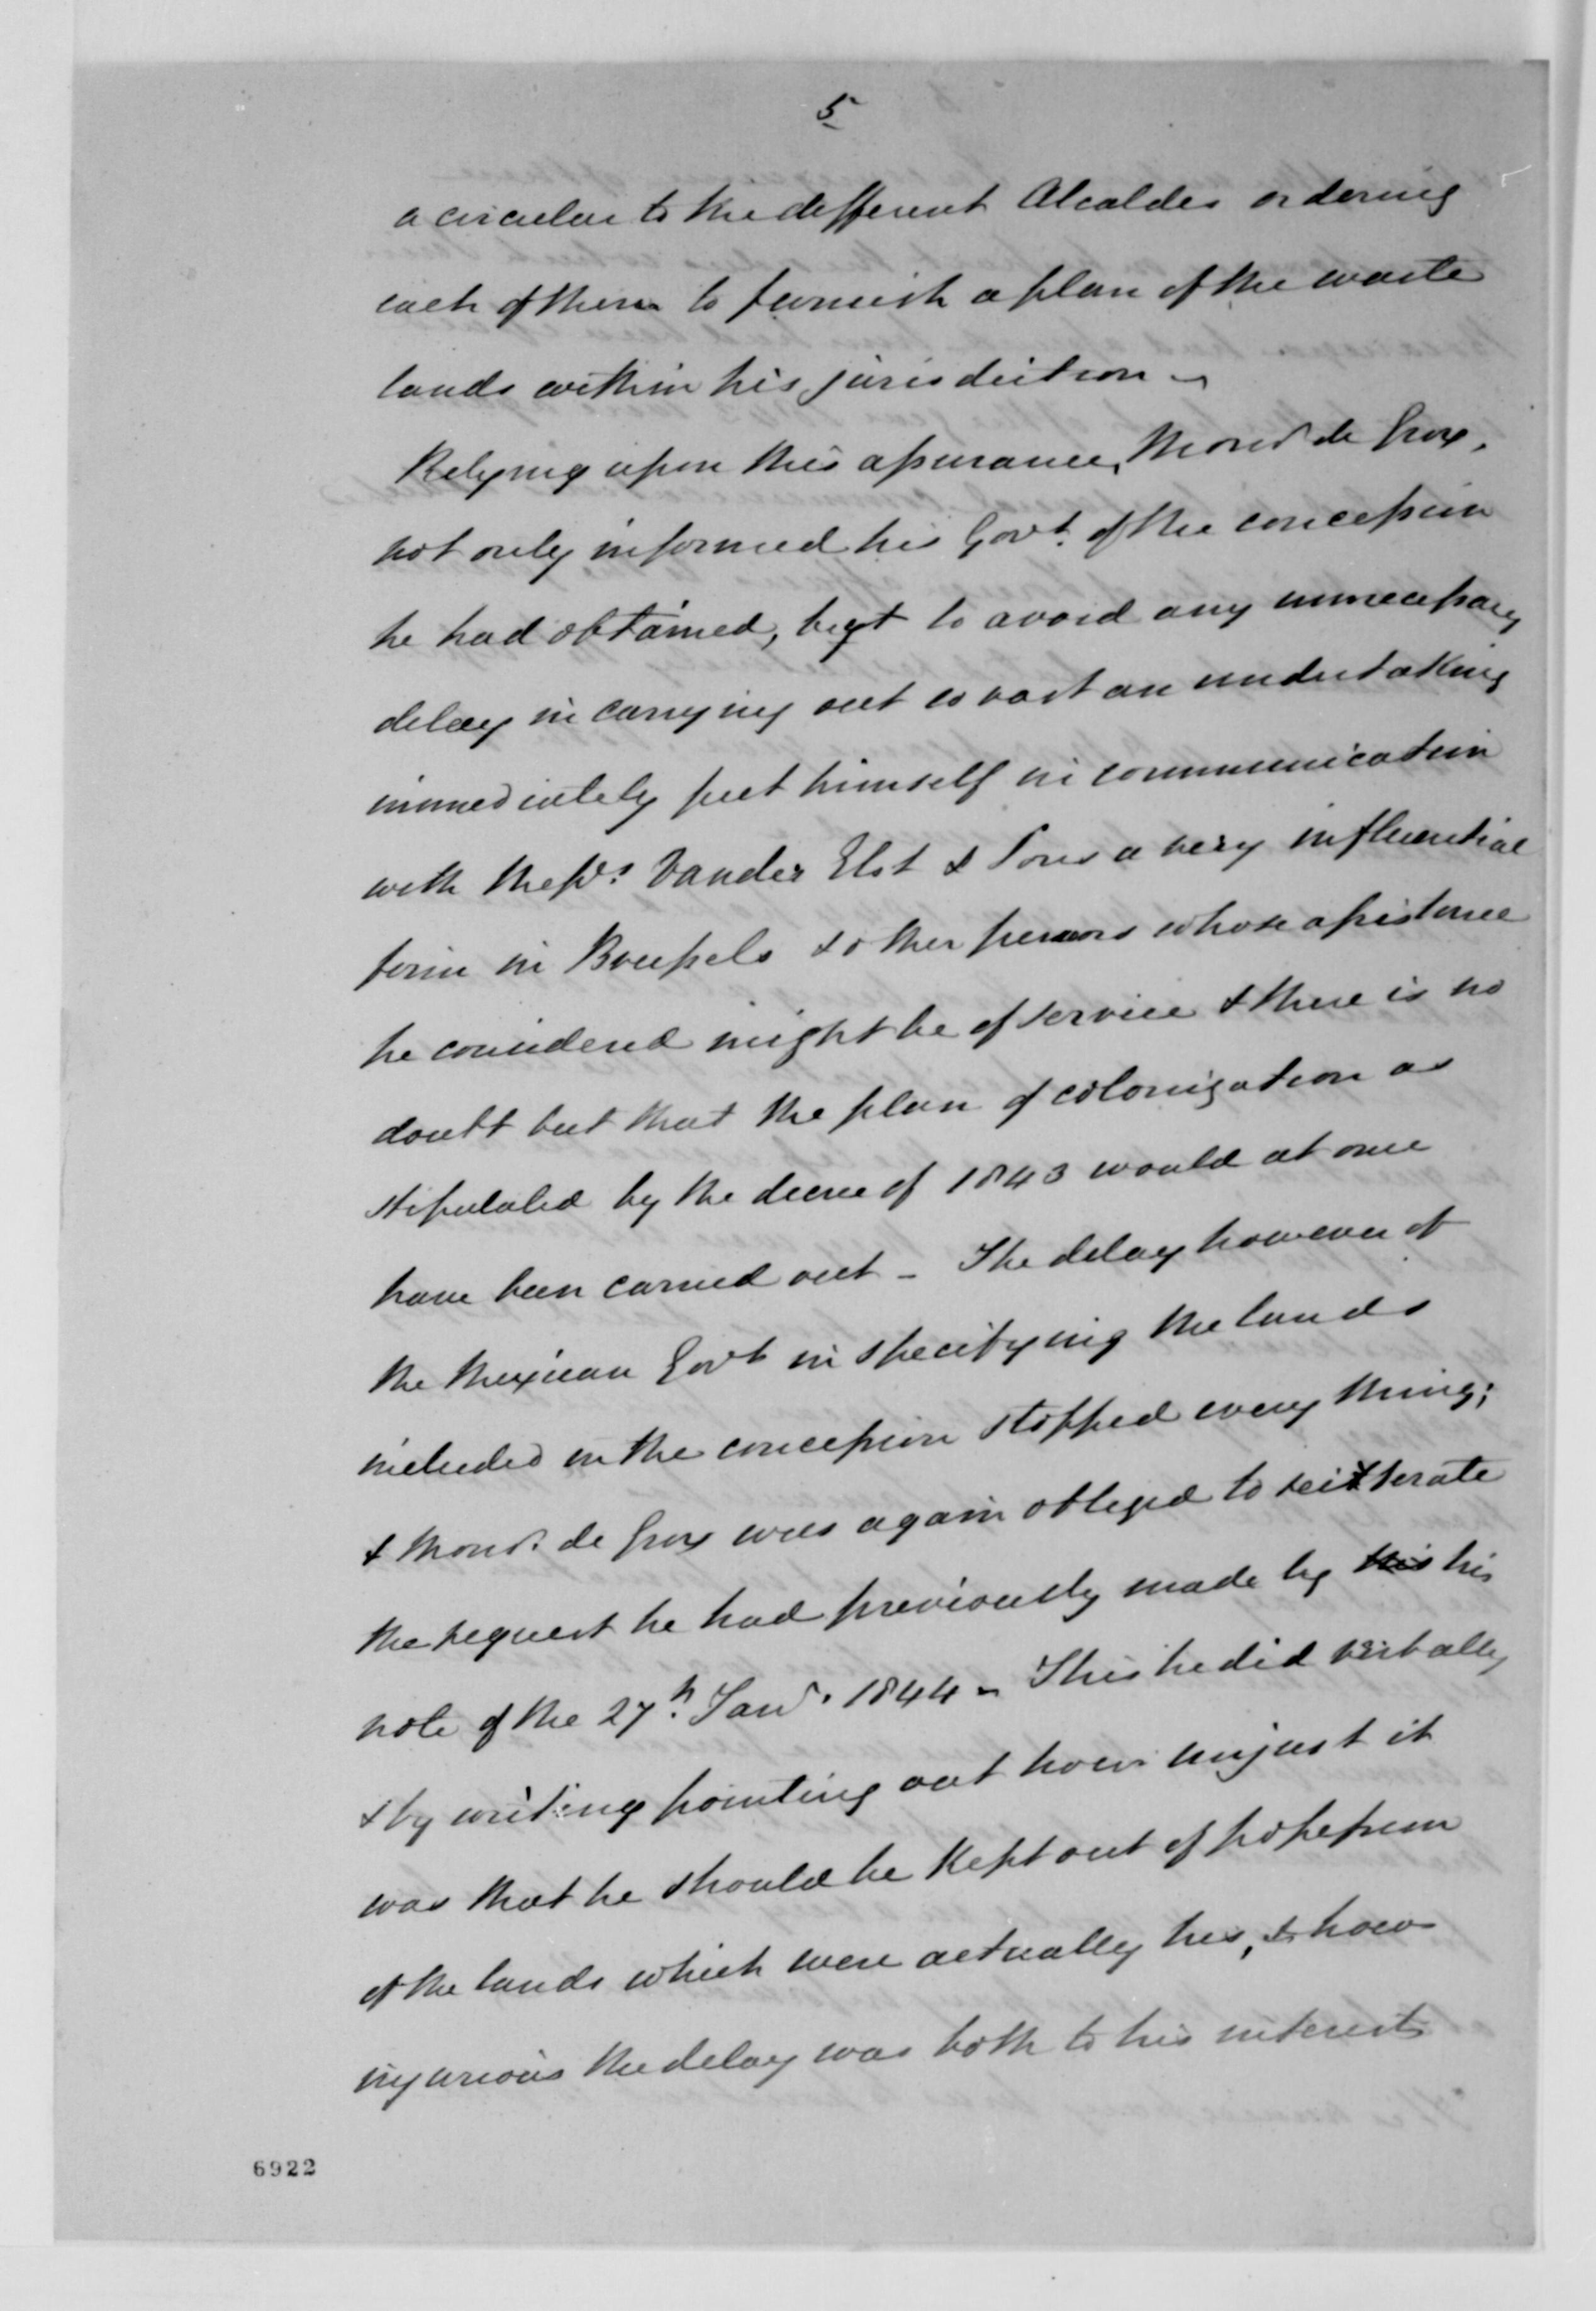 5
a circular to the different Alcaldes ordering
each of them to furnish a plan of the waste
lands within his jurisdiction -
Relying upon this assurance, Monsr de Grox,
not only informed his Govt. of the concession
he had obtained, but to avoid any unnecessary
delay in carrying out so vast an undertaking
immediately put himself in communication
with Messrs Vander Elst & Sons a very influential
firm in Brussels & other persons whose assistance
he considered might be of service & there is no
doubt but that the plan of colonization as
stipulated by the decree of 1843 would at once
have been carried out - The delay however of
the Mexican Govt in specifying the lands
included in the concession stopped every thing;
& Monsr. de Grox was again obliged to reitterate
the request he had previously made by this his
note of the 27th. Jany. 1844 - This he did verbally
& by writing pointing out how unjust it
was that he should be kept out of possession
of the lands which were actually his, & how
injurious the delay was both to his interests
6922